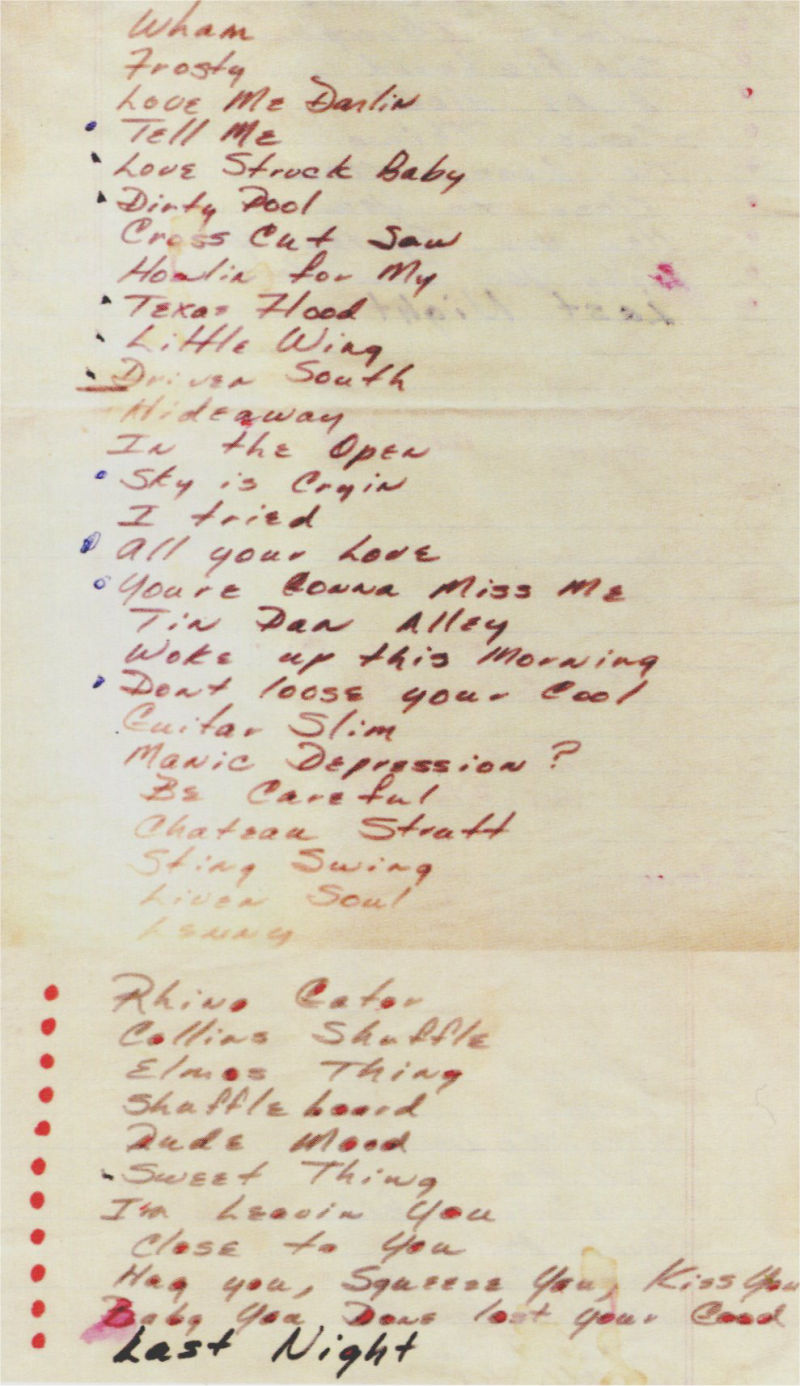 Wham
Frosty
Love Me Darlin
Tell Me
Love Struck Baby
Dirty Pool
Cross Cut Saw
Howlin for My
Texas Flood
Little Wing
Driven South
Hideaway
In the Open
Sky is Cryin
I tried
All your Love
Youre Gonna Miss Me
Tin Pan Alley
Woke up this Morning
Dont loose your Cool
Guitar Slim
Manic Depression ?
Be Careful
Chateau Strutt
Sting Swing
Liven Soul
Lenny
Rhino
Collins Shuffle
Elmos Thing
Shuffleboard
Dude Mood
Sweet Thing
I'm Leavin You
Close to You
Hug you, Squeeze You, Kiss You
Baby You Done lost your Good
Last Night